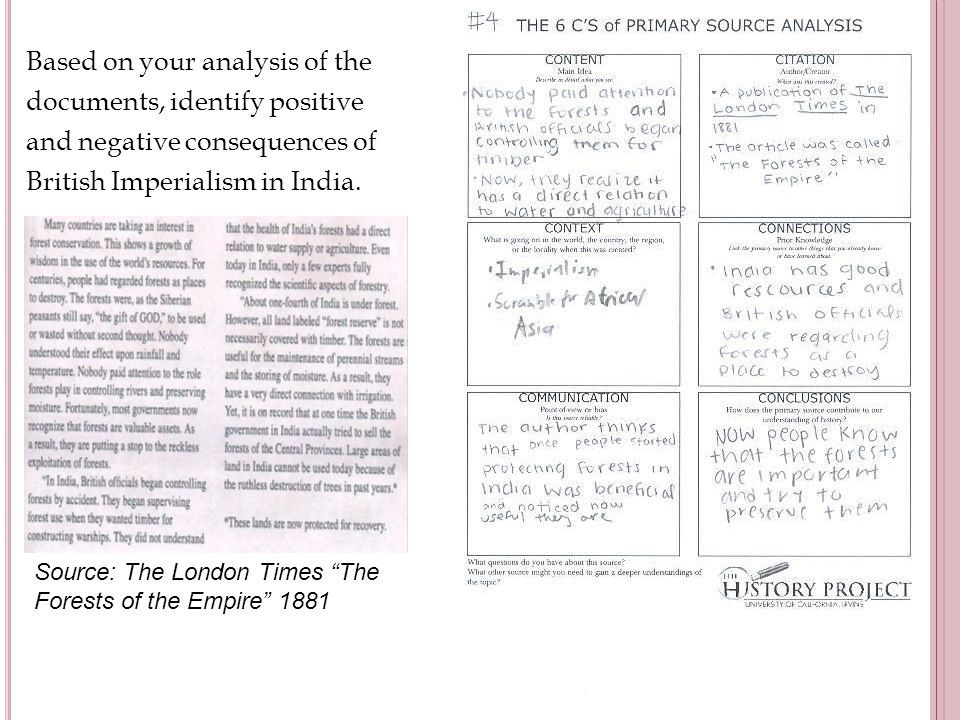 Based on your analysis of the
documents, identify positive
and negative consequences of
British Imperialism in India.
Many countries are taking an interest in
forest conservation. This shows a growth of
wisdom in the use of the world's resources. For
centuries, people had regarded forests as places
to destroy. The forests were, as the Siberian
peasants still say, "the gift of GOD," to be used
or wasted without second thought. Nobody
understood their effect upon rainfall and
temperature. Nobody paid attention to the role
forests play in controlling rivers and preserving
moisture. Fortunately, most governments now
recognize that forests are valuable assets. As
a result, they are putting a stop to the reckless
exploitation of forests.
"In India, British officials began controlling
forests by accident. They began supervising
forest use when they wanted timber for
constructing warships. They did not understand
that the health of India's forests had a direct
relation to water supply or agriculture. Even
today in India, only a few experts fully
recognized the scientific aspects of forestry.
"About one-fourth of India is under forest.
However, all land labeled "forest reserve" is not
necessarily covered with timber. The forests are
useful for the maintenance of perennial streams
and the storing of moisture. As a result, they
have a very direct connection with irrigation.
Yet, it is on record that at one time the British
government in India actually tried to sell the
forests of the Central Provinces. Large areas of
land in India cannot be used today because of
the ruthless destruction of trees in past years.*
*These lands are now protected for recovery.
Source: The London Times "The
Forests of the Empire" 1881
#4 THE 6 C'S of PRIMARY SOURCE ANALYSIS
CONTENT
Main Idea
Describe in detail what you see.
• Nobody paid attention
to the forests and
British officials began
controlling them for
timber
• Now, they realize it
has a direct relation
to water and agriculture
CITATION
Author/Creator
When was this created?
• A publication of The
London Times in
1881
• The article was called
"The Forests of the
Empire"
CONTEXT
What is going on in the world, the country, the region,
or the locality when this was created?
• Imperialism
• Scramble for Africa/
Asia
CONNECTIONS
Prior Knowledge
Link the primary source to other things that you already know
or have learned about.
• India has good
rescources and
British officials
were regarding
forests as a
place to destroy
COMMUNICATION
Point-of-view or bias
Is this source reliable?
The author thinks
that once people started
protecting forests in
India was beneficial
and noticed how
useful they are
CONCLUSIONS
How does the primary source contribute to our
understanding of history?
NOW people know
that the forests
are important
and try to
preserve them
What questions do you have about this source?
What other source might you need to gain a deeper understanding of
the topic?
THE
HISTORY PROJECT
UNIVERSITY OF CALIFORNIA, IRVINE